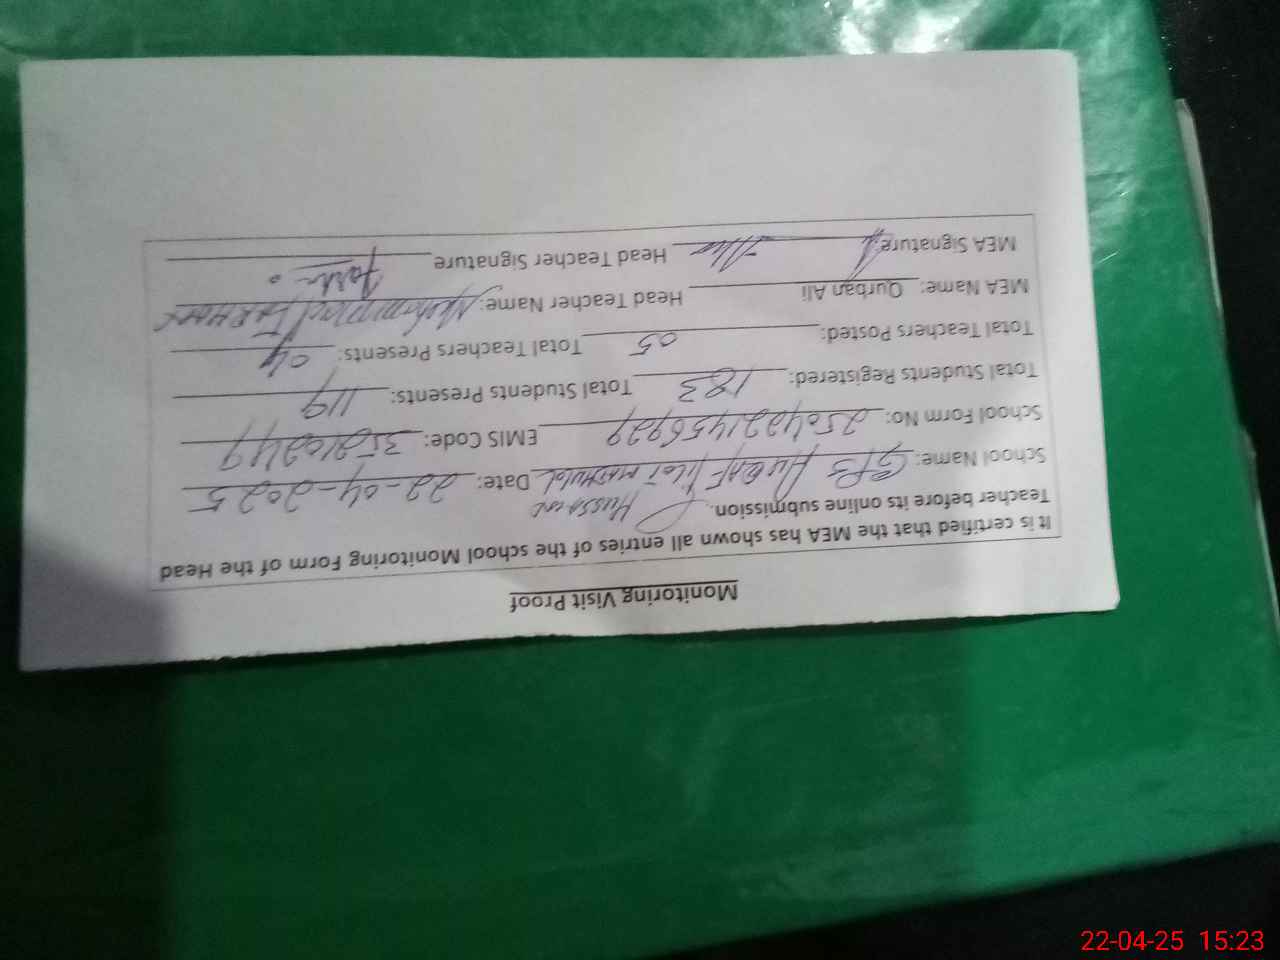 Monitoring Visit Proof
It is certified that the MEA has shown all entries of the school Monitoring Form of the Head
Teacher before its online submission. Hussain
School Name: GPS Date: 22-04-2025
School Form No: 2504221456929 EMIS Code: 35210249
Total Students Registered: 183 Total Students Presents: 119
Total Teachers Posted: 05 Total Teachers Presents: 04
MEA Name: Qurban Ali Head Teacher Name: Muhammad FARHAN
MEA Signature Head Teacher Signature
22-04-25 15:23